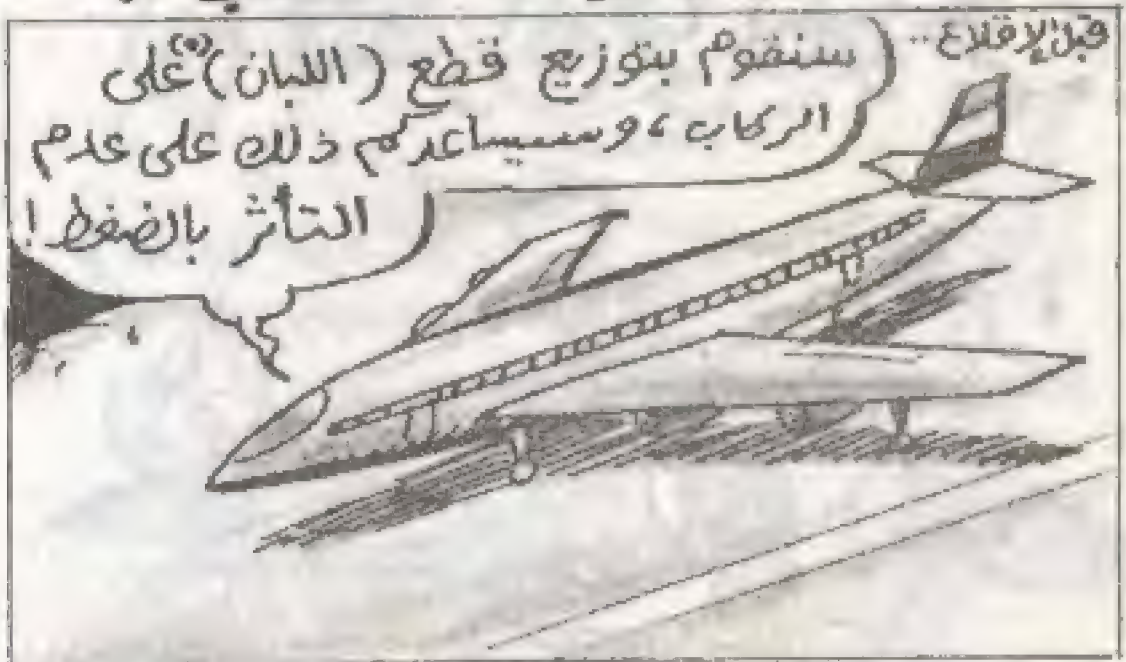 قبل الإقلاع..
سنقوم بتوزيع قطع (اللبان)(*) على
الركاب، وسيساعدكم ذلك على عدم
التأثر بالضغط!